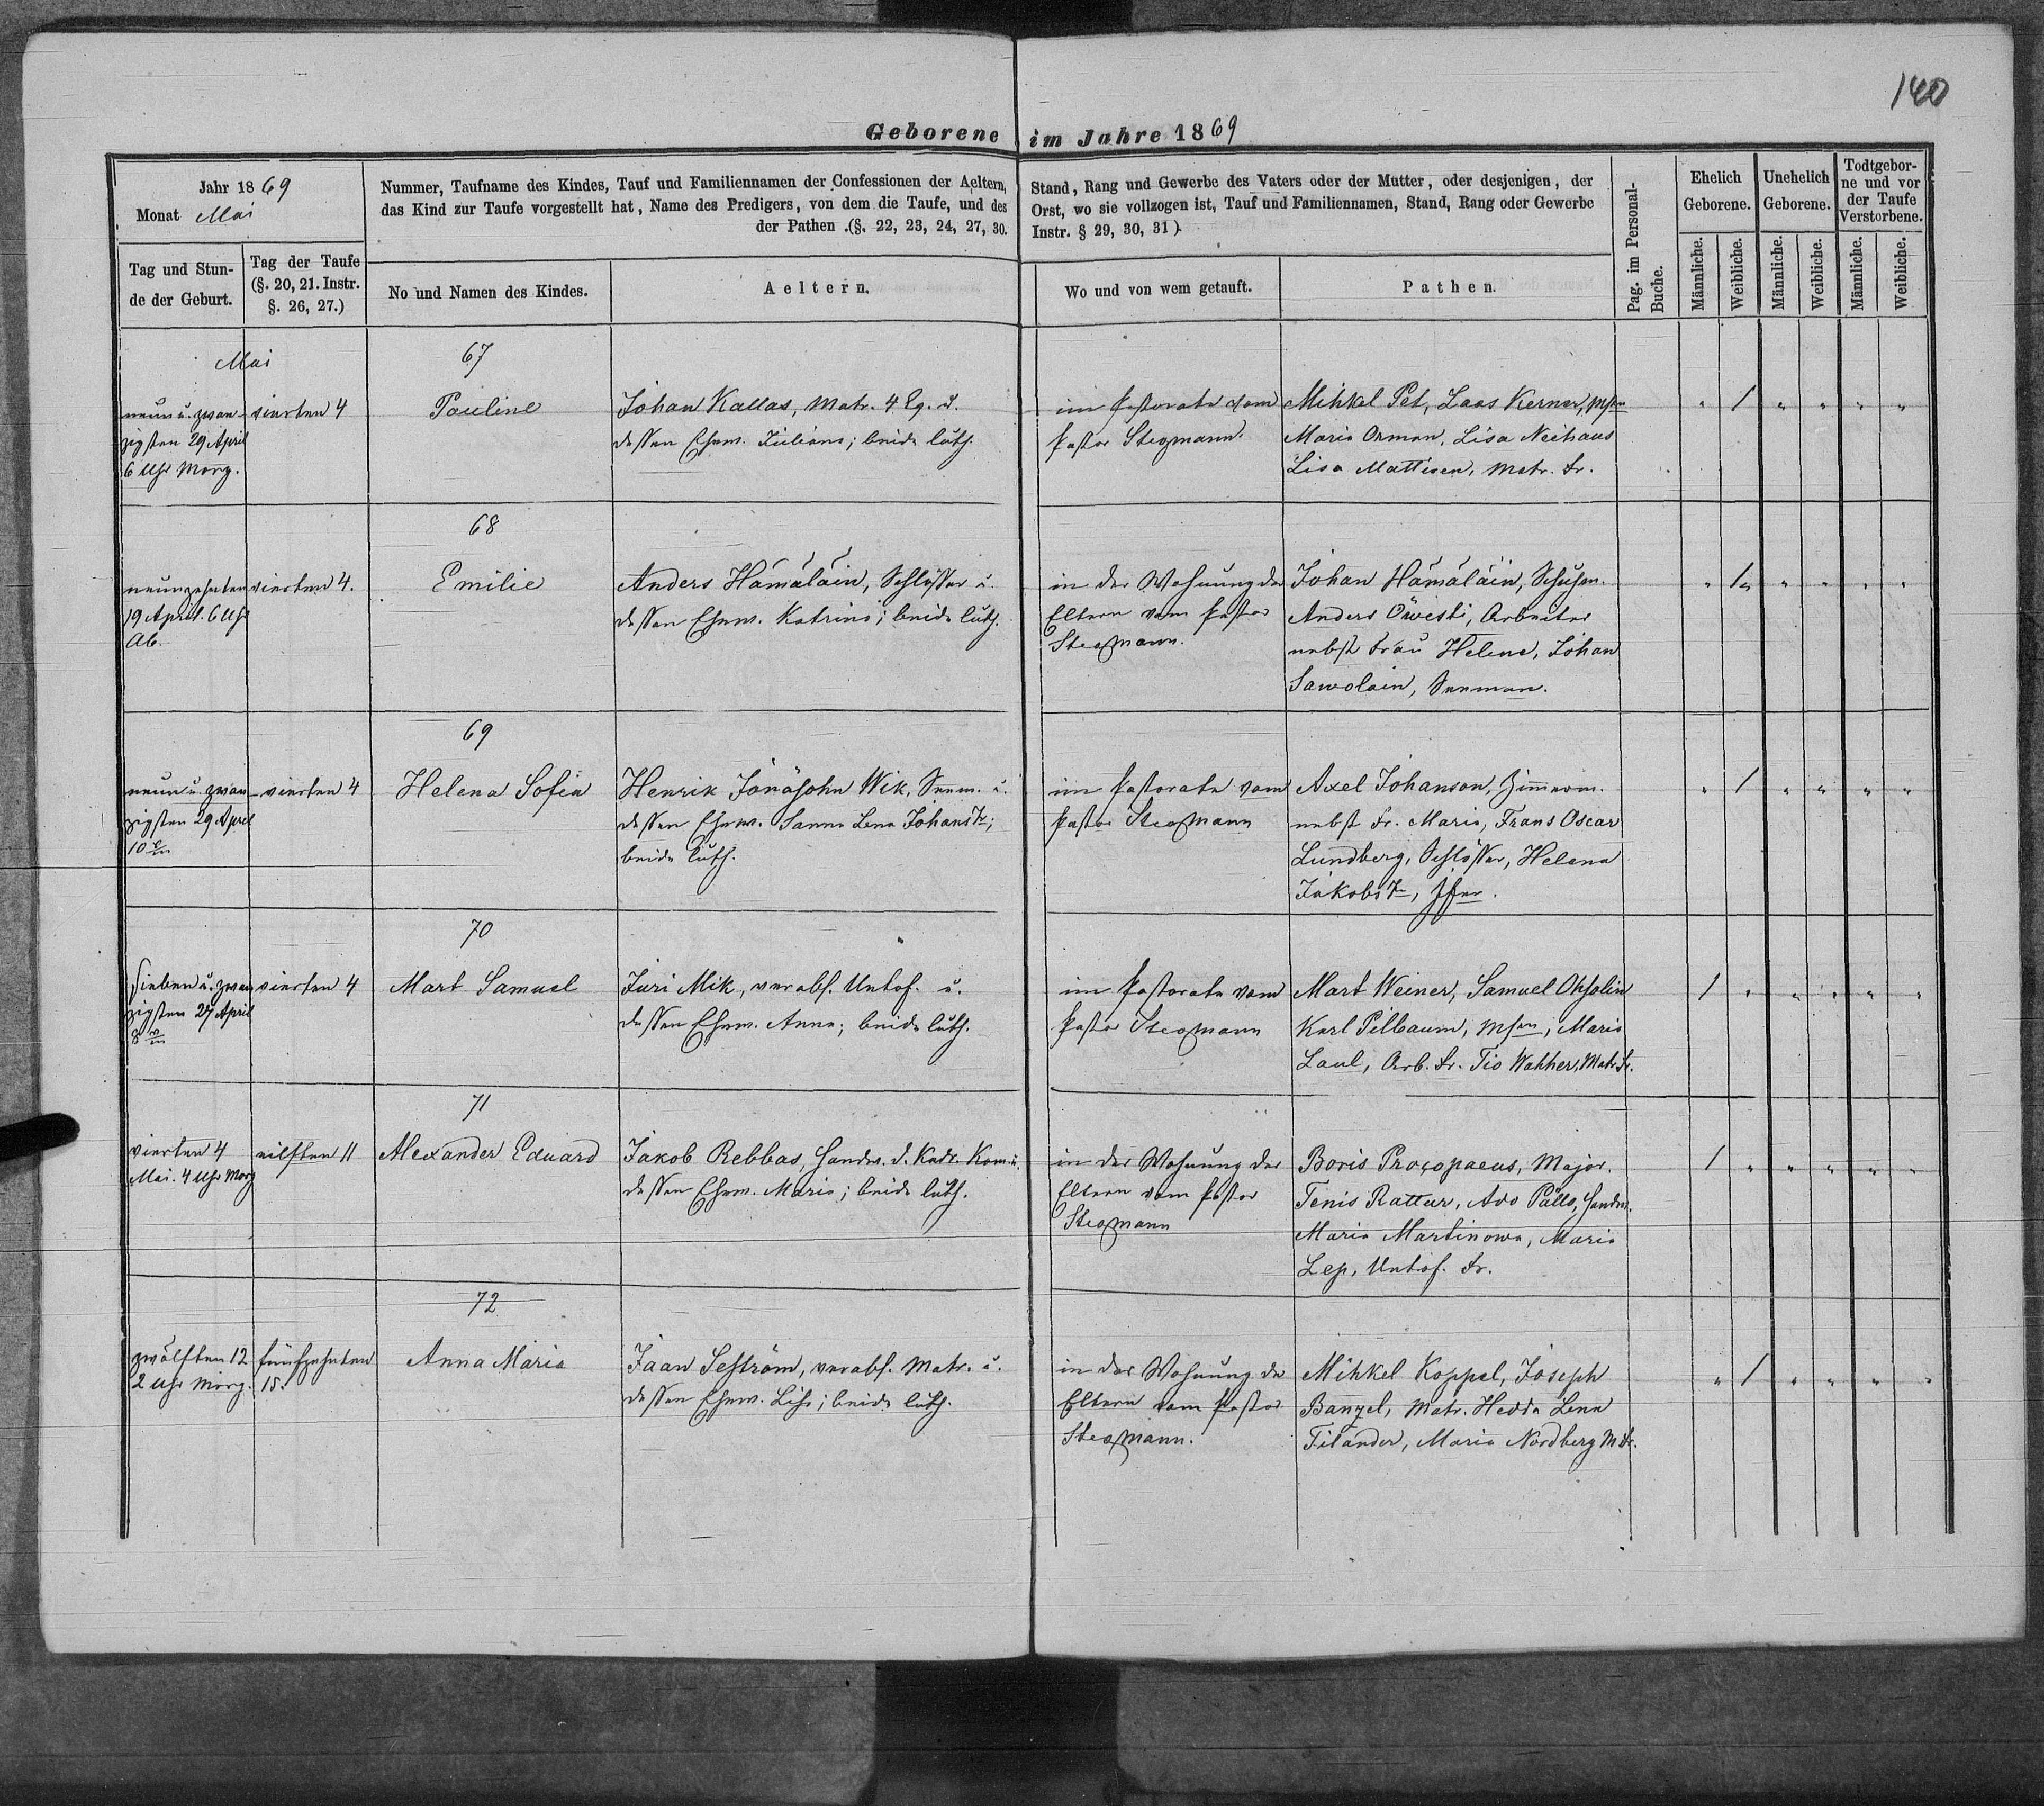 140
Geborene im Jahre 1869
Jahr 1869
Monat Mai
Nummer, Taufname des Kindes, Tauf und Familiennamen der Confessionen der Aeltern,
das Kind zur Taufe vorgestellt hat, Name des Predigers, von dem die Taufe, und des
der Pathen .(§. 22, 23, 24, 27, 30.
Stand, Rang und Gewerbe des Vaters oder der Mutter, oder desjenigen, der
Orst, wo sie vollzogen ist, Tauf und Familiennamen, Stand, Rang oder Gewerbe
Instr. § 29, 30, 31)
Pag. im Personal-
Buche.
Ehelich
Geborene.
Unehelich
Geborene.
Todtgebor-
ne und vor
der Taufe
Verstorbene.
Tag und Stun-
de der Geburt.
Tag der Taufe
(§. 20, 21. Instr.
§. 26, 27.)
No und Namen des Kindes.
Aeltern.
Wo und von wem getauft.
Pathen.
Männliche.
Weibliche.
Männliche.
Weibliche.
Männliche.
Weibliche.
Mai
67
neun u. zwan-
zigsten 29 April
6 Uhr Morg.
vierten 4
Pauline
Johan Kallas, Matr. 4 Eq. u.
dessen Ehew. Juliana; beide luth.
im Pastorate vom
Pastor Stegmann.
Mihkel Pet, Laas Kerner, 
Maria Orman, Lisa Neihaus
Lisa Mattisen, Matr. Fr.
" / " " " "
68
neunzehnten
19 April. 6 Uhr
Ab.
vierten 4.
Emilie
Anders Hämäläin, Schlosser u.
dessen Ehew. Katrina; beide luth.
in der Wohnung der
Eltern vom Pastor
Stegmann.
Johan Hämäläin, Schuhm.
Anders Öwesti, Arbeiter
nebst Frau Helene, Johan
Sawolain, Seeman.
" / " " " "
69
neun u. zwan-
zigsten 29 April
10
vierten 4
Helena Sofia
Henrik Jonäsohn Wik, Seem. u.
dessen Ehew. Sanna Lena Johanstr;
beide luth.
im Pastorate vom
Pastor Stegmann
Axel Johanson, Zimmerm.
nebst Fr. Maria, Frans Oscar
Lundberg, Schlosser, Helena
Jakobstr, Jfer.
" / " " " "
70
sieben u. zwan
zigsten 27 April
8
vierten 4
Mart Samuel
Juri Mik, verabs. Untof. u.
dessen Ehew. Anna; beide luth.
im Pastorate vom
Pastor Stegmann
Mart Weiner, Samuel Ohsolin
Karl Pilbaum, Maria
Laul, Arb. Fr. Tio Wahher, Matr. Fr.
/ " " " " "
71
vierten 4
Mai. 4 Uhr Morg
eilften 11
Alexander Eduard
Jakob Rebbas, Handw. d. Kadr. Kom. u.
dessen Ehew. Maria; beide luth.
in der Wohnung der
Eltern vom Pastor
Stegmann
Boris Procopaeus, Major.
Tenis Rattur, Ado Pällo, Handw.
Maria Martinowa, Maria
Lep, Untof. Fr.
/ " " " " "
72
zwölften 12
2 Uhr Morg.
fünfzehnten
15.
Anna Maria
Jaan Seström, verabs. Matr. u.
dessen Ehew. Liso; beide luth.
in der Wohnung der
Eltern vom Pastor
Stegmann.
Mihkel Koppel, Joseph
Banzel, Matr. Hedda Lena
Tilander, Maria Nordberg M Fr.
" / " " " "